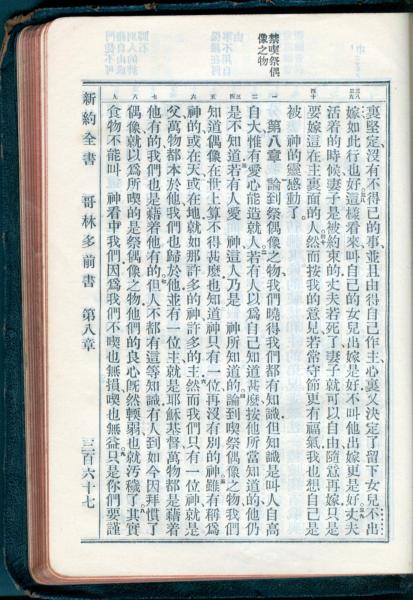 禁喫祭偶
像之物
裏堅定、沒有不得已的事、並且由得自己作主、心裏又決定了留下女兒不出
嫁、如此行也好、這樣看來叫自己的女兒出嫁是好、不叫他出嫁更是好、丈夫
活着的時候、妻子是被約束的、丈夫若死了、妻子就可以自由、隨意再嫁、只是
要嫁這在主裏面的人、然而按我的意見、若常守節更有福氣、我也想自己是
被 神的靈感動了。
第八章 論到祭偶像之物、我們曉得我們都有知識、但知識是叫人自高
自大、惟有愛心能造就人、若有人以爲自己知道甚麼、按他所當知道的、他仍
是不知道、若有人愛 神、這人乃是 神所知道的、論到喫祭偶像之物、我們
知道偶像在世上算不得甚麼、也知道神只有一位、再沒有別的神、雖有稱爲
神的、或在天、或在地、就如那許多的神、許多的主、然而我們只有一位神、就是
父、萬物都本於他、我們也歸於他、並有一位主、就是耶穌基督、萬物都是藉着
他有的、我們也是藉着他有的、但人不都有這等知識、有人到如今因拜慣了
偶像、就以爲所喫的是祭偶像之物、他們的良心旣然輭弱、也就汚穢了、其實
食物不能叫 神看中我們、因爲我們不喫也無損、喫也無益、只是你們要謹
新約全書 哥林多前書 第八章 三百六十七